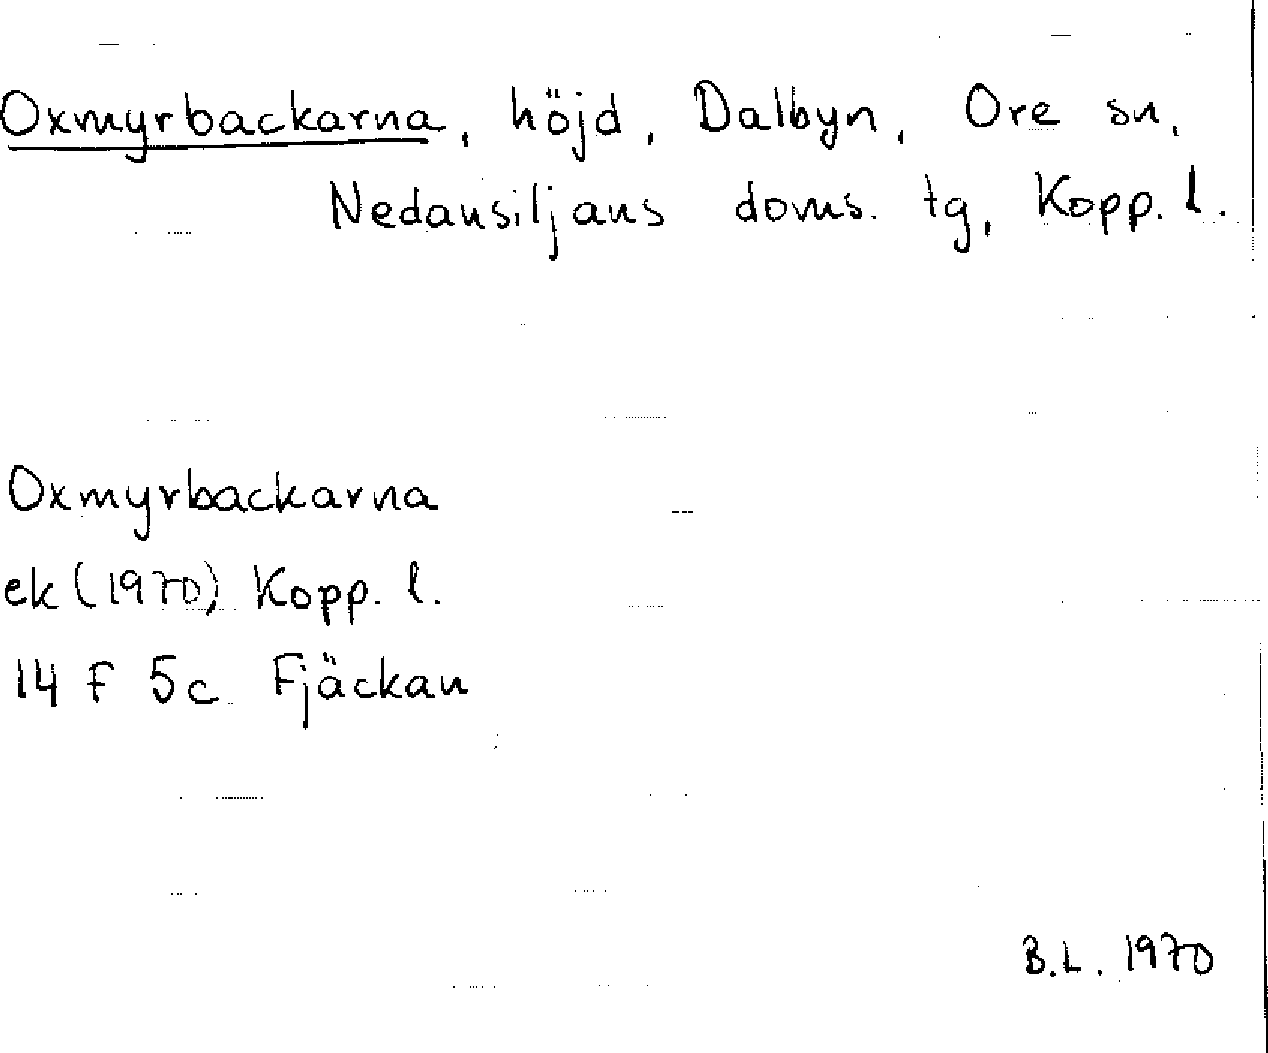 Oxmyrbackarna, höjd, Dalbyn, Ore sn,
Nedansiljans doms. tg, Kopp. l.
Oxmyrbackarna
ek (1970) Kopp. l.
14 F 5c Fjäckan
B.L. 1970